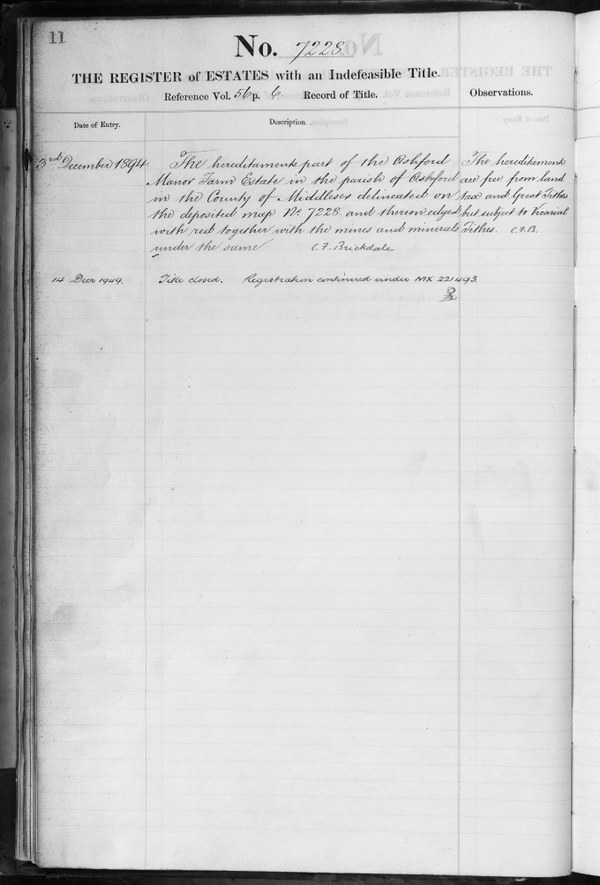 11
No. 7228.
THE REGISTER of ESTATES with an Indefeasible Title.
Reference Vol. 56 p. 6 Record of Title.
Observations.
Date of Entry.
Description.
3rd December 1894
The hereditaments part of the Ashford
Manor Farm Estate in the parish of Ashford
in the County of Middlesex delineated on
the deposited map No. 7228 and thereon edged
with red together with the mines and minerals
under the same C. F. Brickdale
The hereditaments
are free from land
tax and Great Tithes
but subject to
Tithes. C.F.B.
14 Decr 1949.
Title closed. Registration continued under MX 221493.